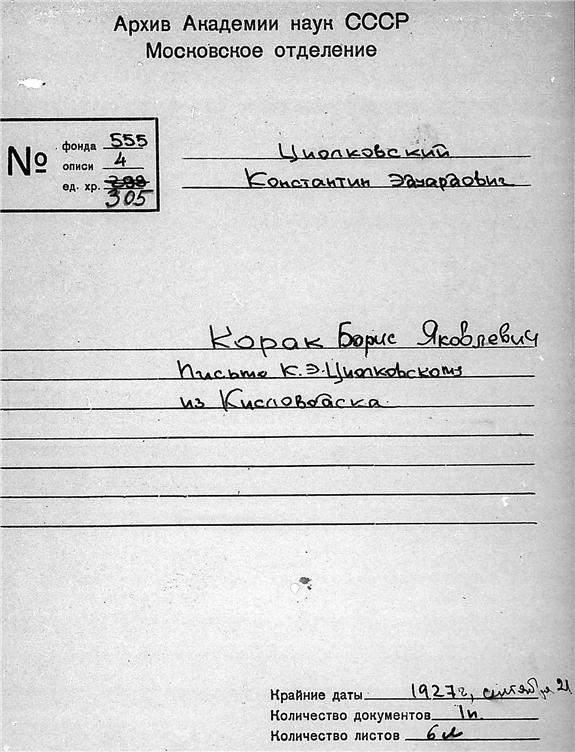 Архив Академии наук СССР
Московское отделение
№
фонда 555
описи 4
ед. хр. 298
305
Циолковский
Константин Эдуардович
Корак Борис Яковлевич
Письмо К.Э.Циолковскому
из Кисловодска
Крайние даты 1927г, сентября 21
Количество документов 1п.
Количество листов 6л